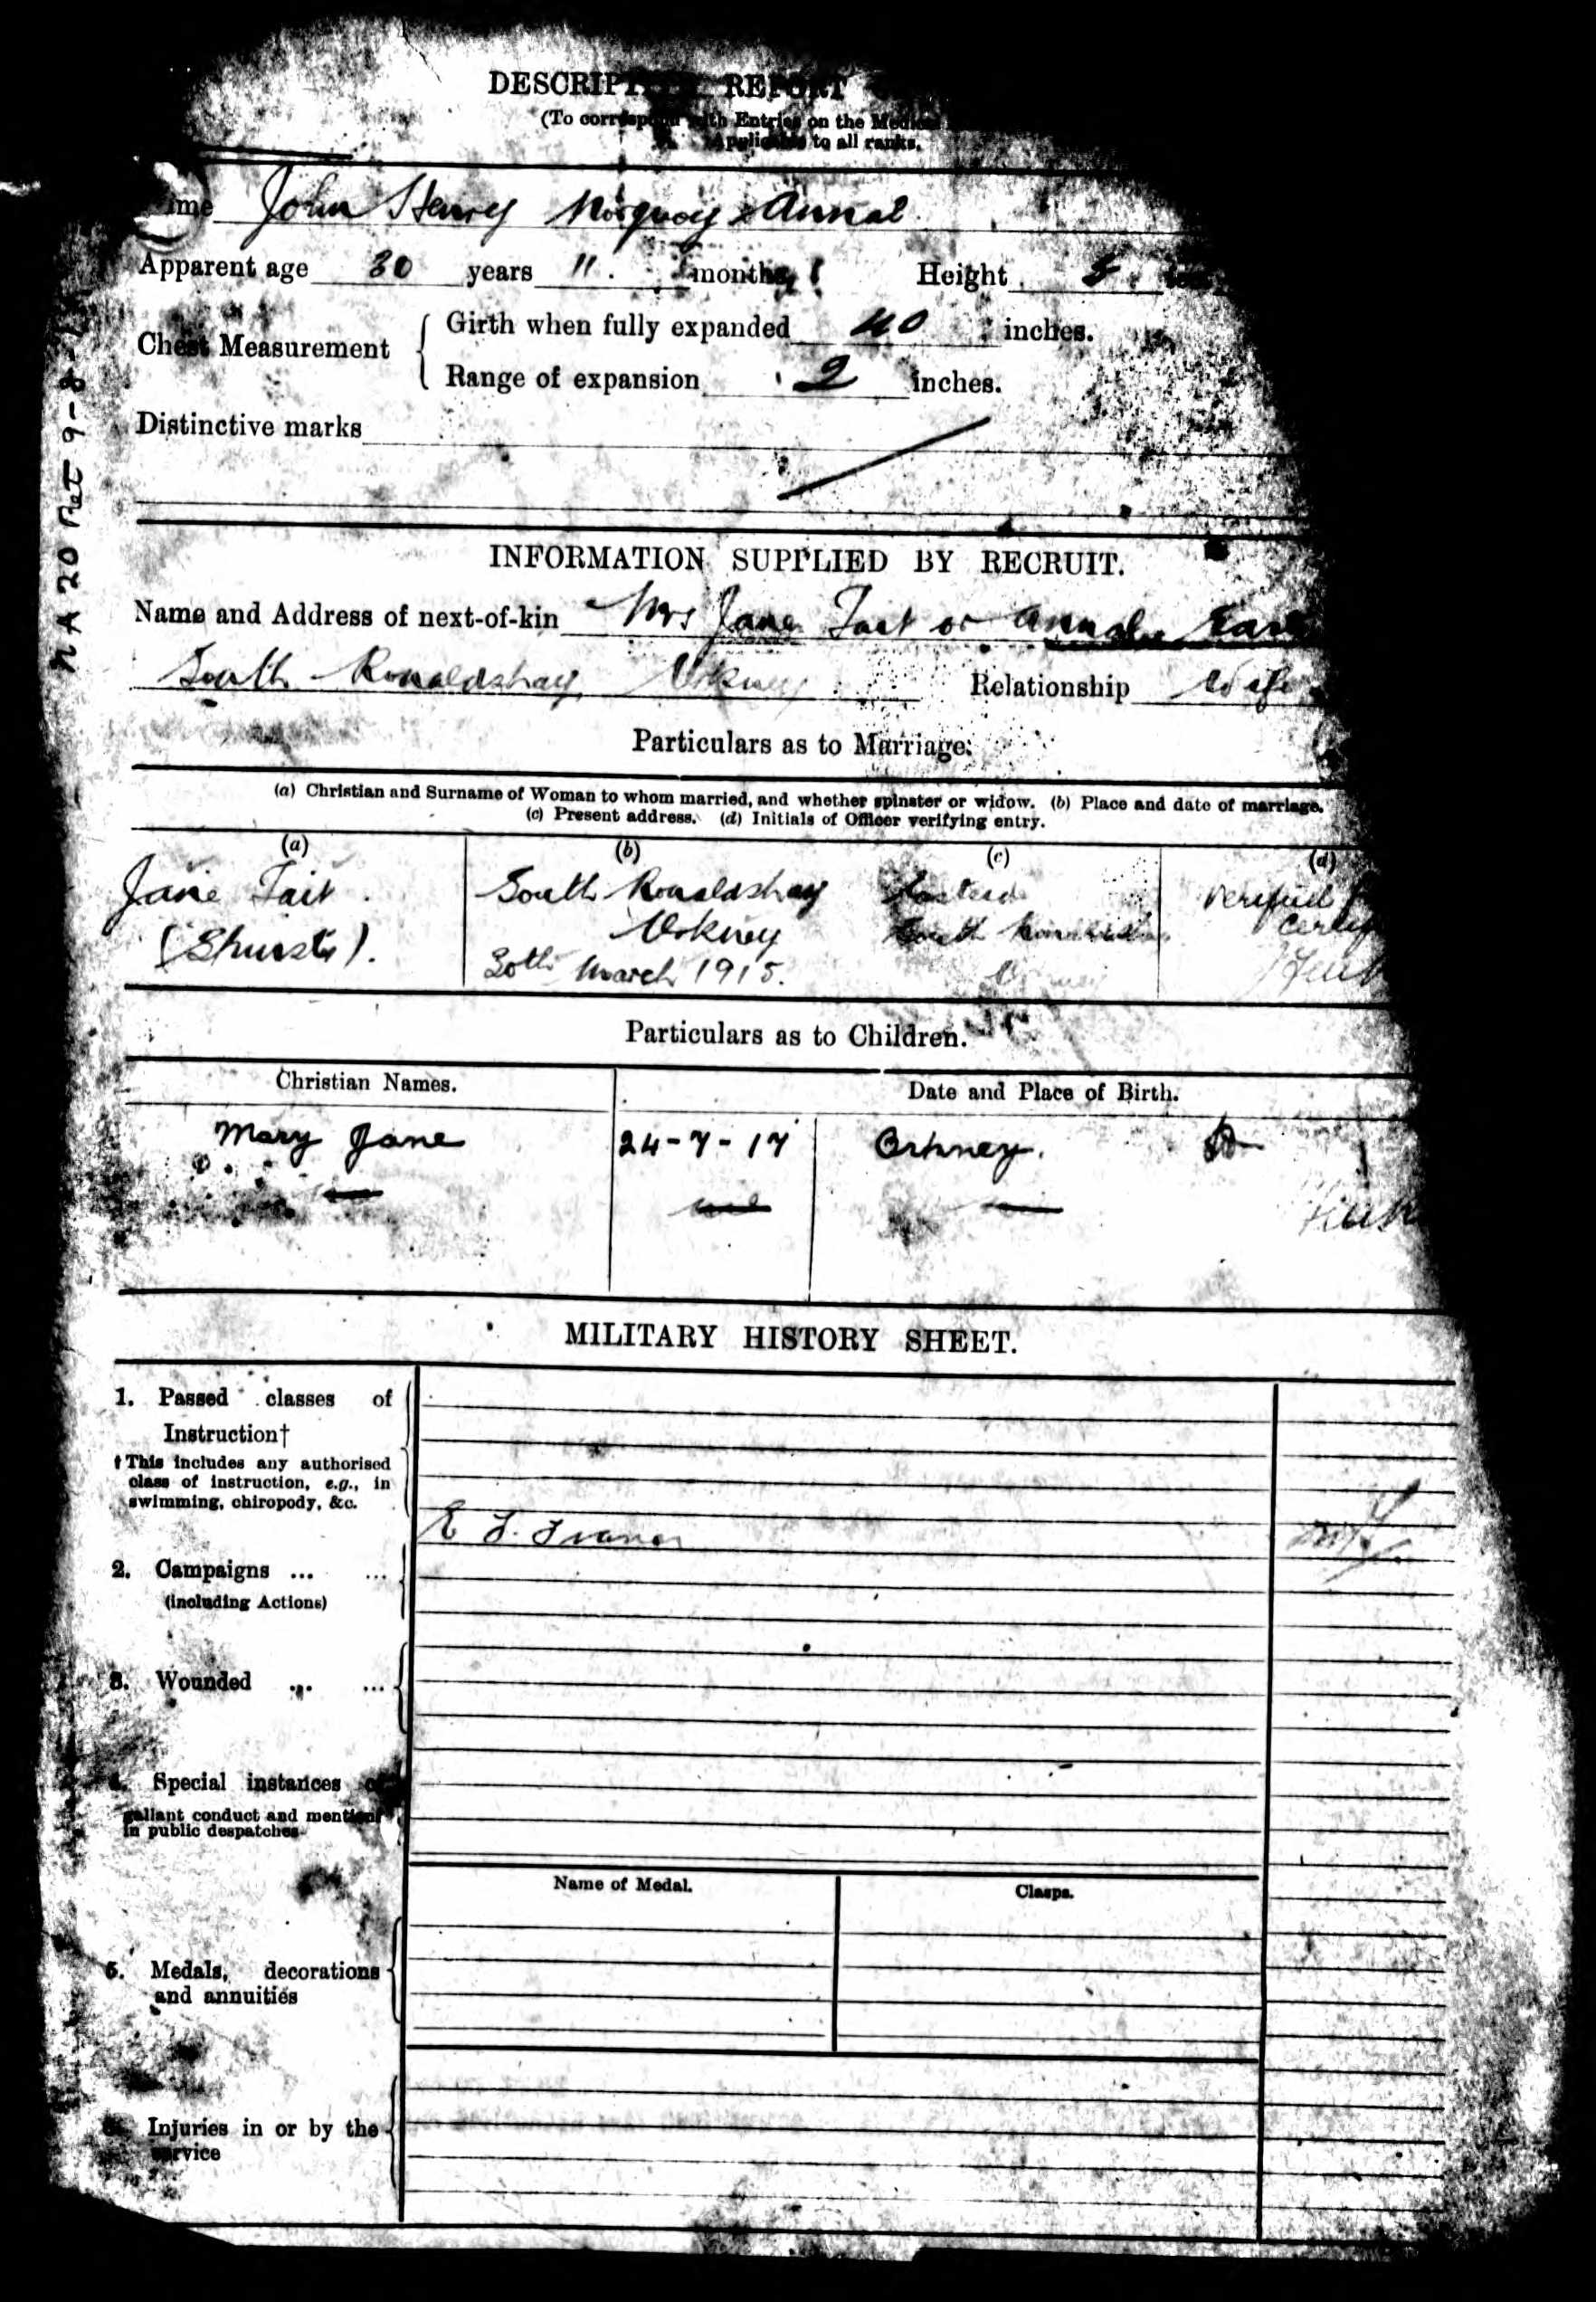 DESCRIPTIVE REPORT
(To correspond with Entries on the Medical
Applicable to all ranks.
John Henry Norquoy Annal
Apparent age 30 years 11. months Height 5
Chest Measurement
Girth when fully expanded 40 inches.
Range of expansion 2 inches.
Distinctive marks
INFORMATION SUPPLIED BY RECRUIT.
Name and Address of next-of-kin Mrs Jane Tait or Annal
South Ronaldshay Orkney Relationship Wife
Particulars as to Marriage.
(a) Christian and Surname of Woman to whom married, and whether spinster or widow. (b) Place and date of marriage.
(c) Present address. (d) Initials of Officer verifying entry.
(a) (b) (c) (d)
Jane Tait South Ronaldshay
Orkney South
March 1915.
Particulars as to Children.
Christian Names. Date and Place of Birth.
Mary Jane 24-7-17 Orkney.
MILITARY HISTORY SHEET.
1. Passed classes of
Instruction†
†This includes any authorised
class of instruction, e.g., in
swimming, chiropody, &c.
2. Campaigns ... ...
(including Actions)
3. Wounded ... ...
Special instances of
gallant conduct and mention
in public despatches
Name of Medal. Clasps.
5. Medals, decorations
and annuities
Injuries in or by the
service
NA 20